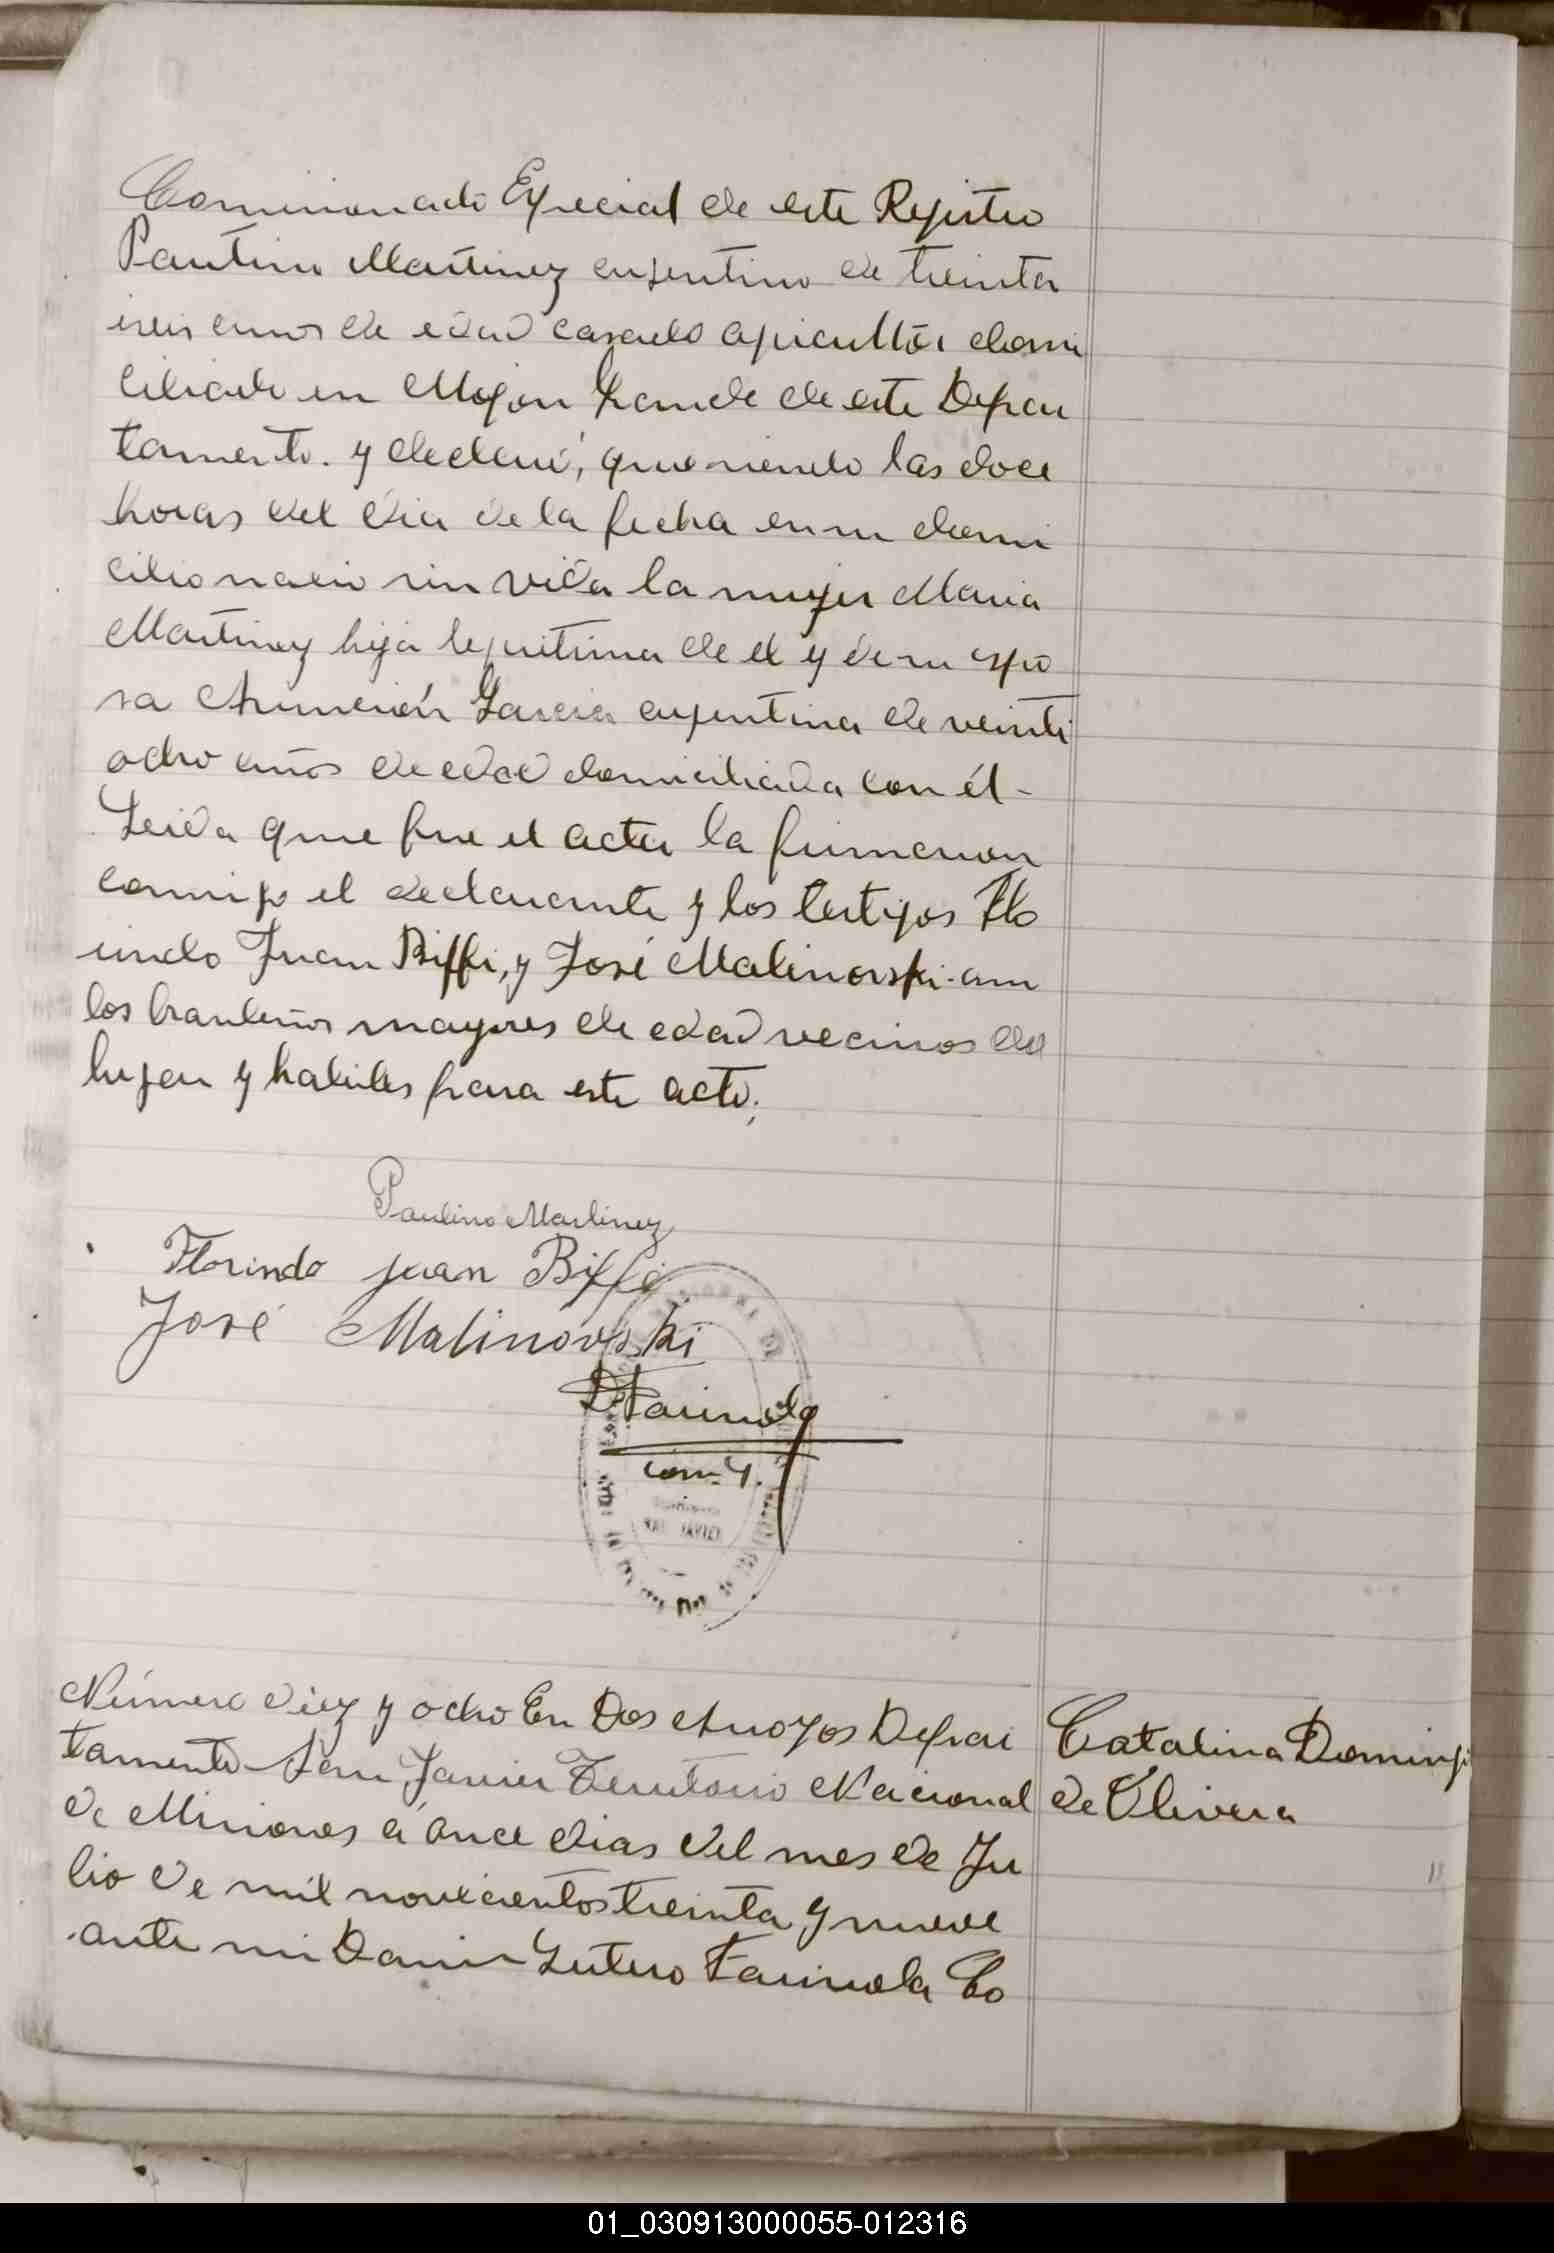 Comisionado Especial de este Rejistro
Paulino Martinez arjentino de treinta
iseis años de edad casado apicultór domi
ciliado en Mojon Grande de este Depar
tamento. y declaró, que siendo las doce
horas del dia de la fecha en su domi
cilio nacio sin vida la mujer Maria
Martinez hija lejitima de el y de su espo
sa Asunción Garcia arjentina de veinti
ocho años de edad domiciliada con él-
Leida que fue el acta la firmaron
comigo el declarante y los testigos Flo
rindo Juan Biffi, y José Malinovski. am
bos brasileños mayores de edad vecinos del
lujar y habiles para este acto;
Paulino Martinez
Florindo juan Biffi
José Malinovski
DFarinola
Com. 
SAN JAVIER
Número diez y ocho En Dos Arroyos Depar
tamento San Javier Territorio Nacional
de Misiones á once dias del mes de Ju
lio de mil novecientos treinta y nueve
ante mi Dario Lutero Farinola Co
Catalina Domingi
de Olivera
01_030913000055-012316